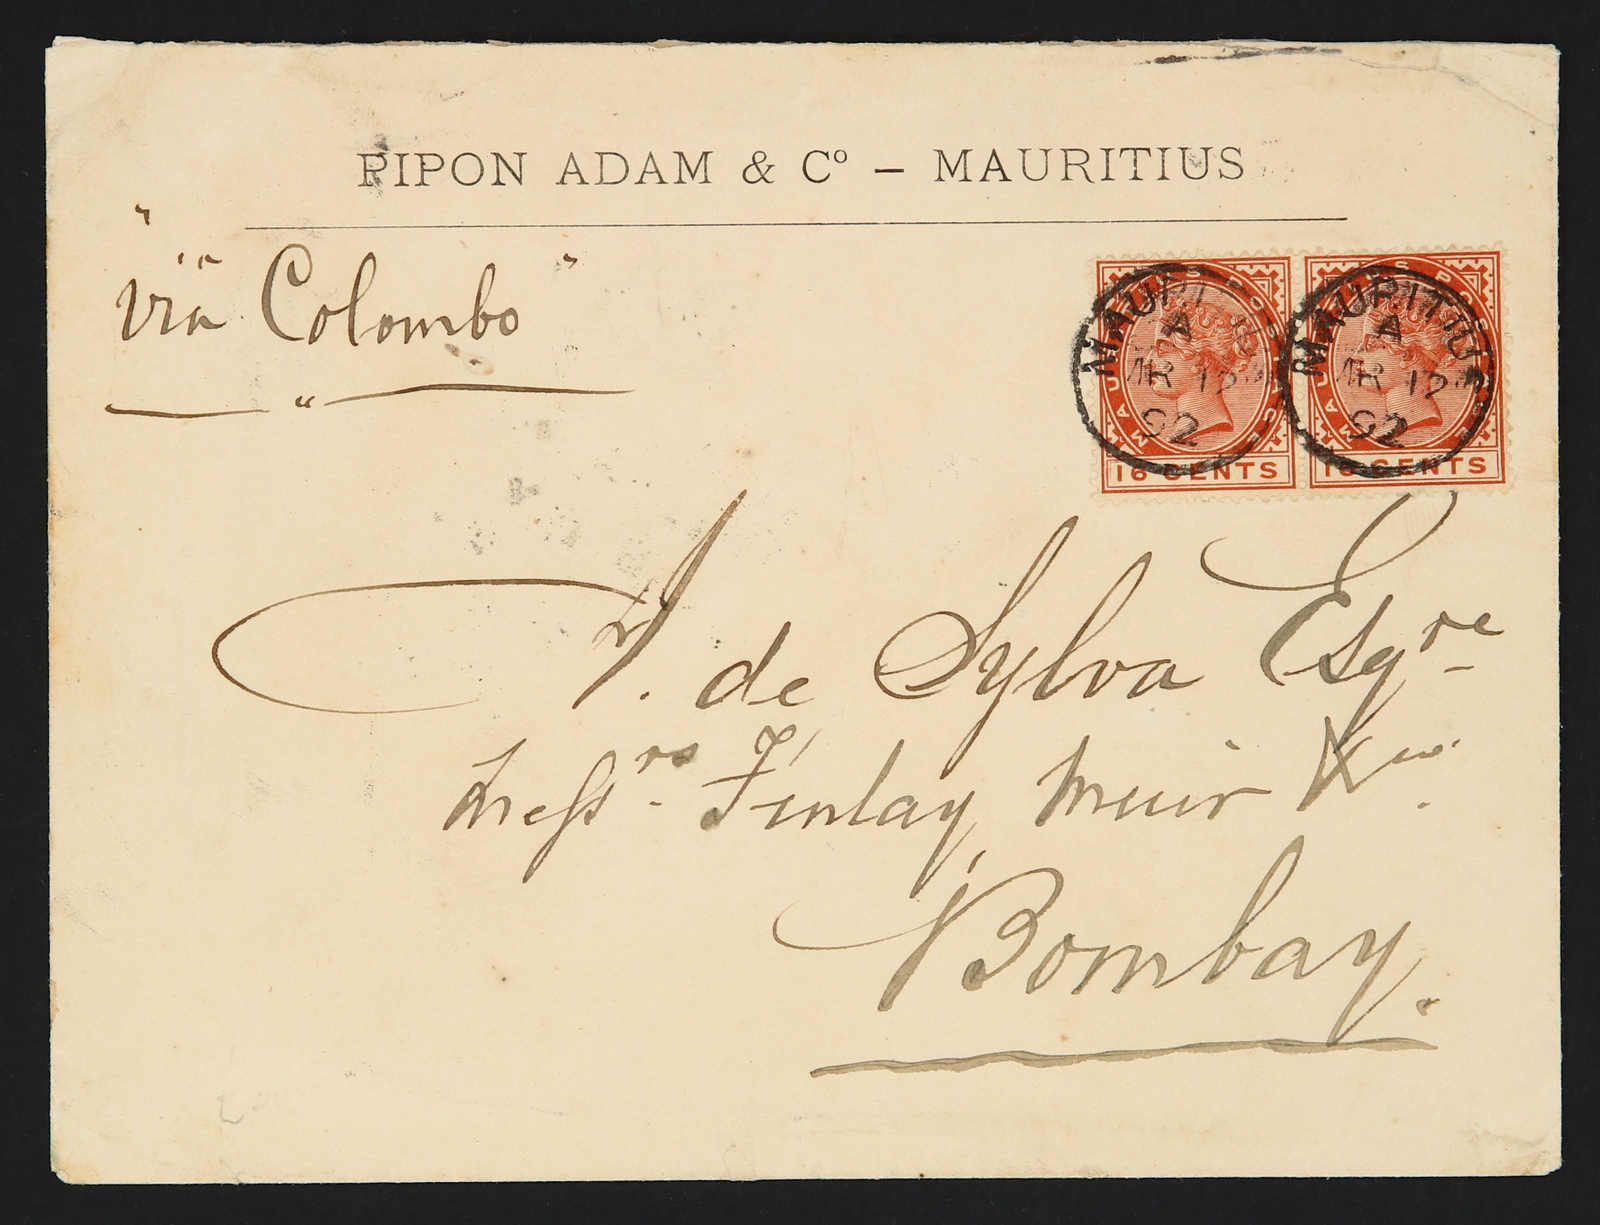 PIPON ADAM & Cº – MAURITIUS
"via Colombo"
MAURITIUS
A
MR 12
92
MAURITIUS
A
MR 12
92
16 CENTS
16 CENTS
de Sylva Esqre
Messrs Finlay Muir & Co.
Bombay.